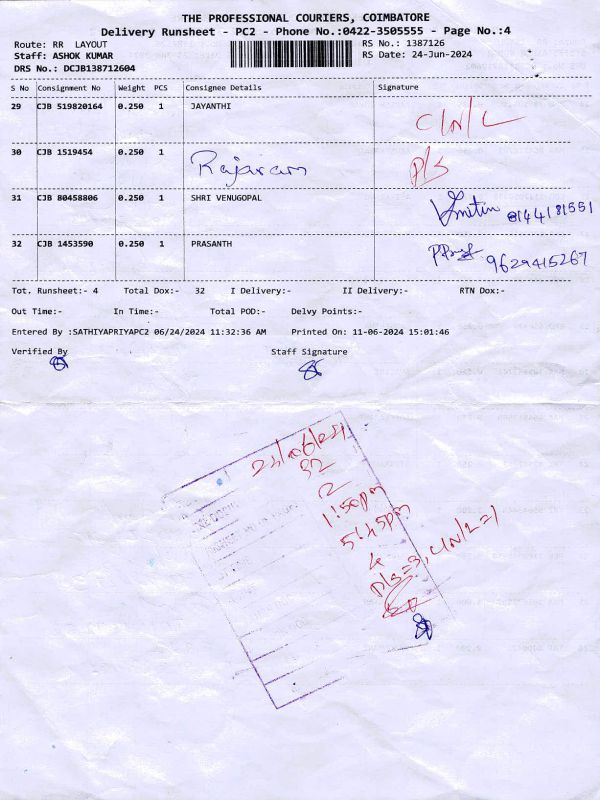 THE PROFESSIONAL COURIERS, COIMBATORE
Delivery Runsheet - PC2 - Phone No.:0422-3505555 - Page No.:4
Route: RR LAYOUT RS No.: 1387126
Staff: ASHOK KUMAR RS Date: 24-Jun-2024
DRS No.: DCJB138712604
S No Consignment No Weight PCS Consignee Details Signature
29 CJB 519820164 0.250 1 JAYANTHI C/N/L
30 CJB 1519454 0.250 1 Rajaram P/S
31 CJB 80458806 0.250 1 SHRI VENUGOPAL 8144181551
32 CJB 1453590 0.250 1 PRASANTH 9629415267
Tot. Runsheet:- 4 Total Dox:- 32 I Delivery:- II Delivery:- RTN Dox:-
Out Time:- In Time:- Total POD:- Delvy Points:-
Entered By :SATHIYAPRIYAPC2 06/24/2024 11:32:36 AM Printed On: 11-06-2024 15:01:46
Verified By Staff Signature
32
2
1:50pm
5:45pm
4
P/S=3, C/N/L=1